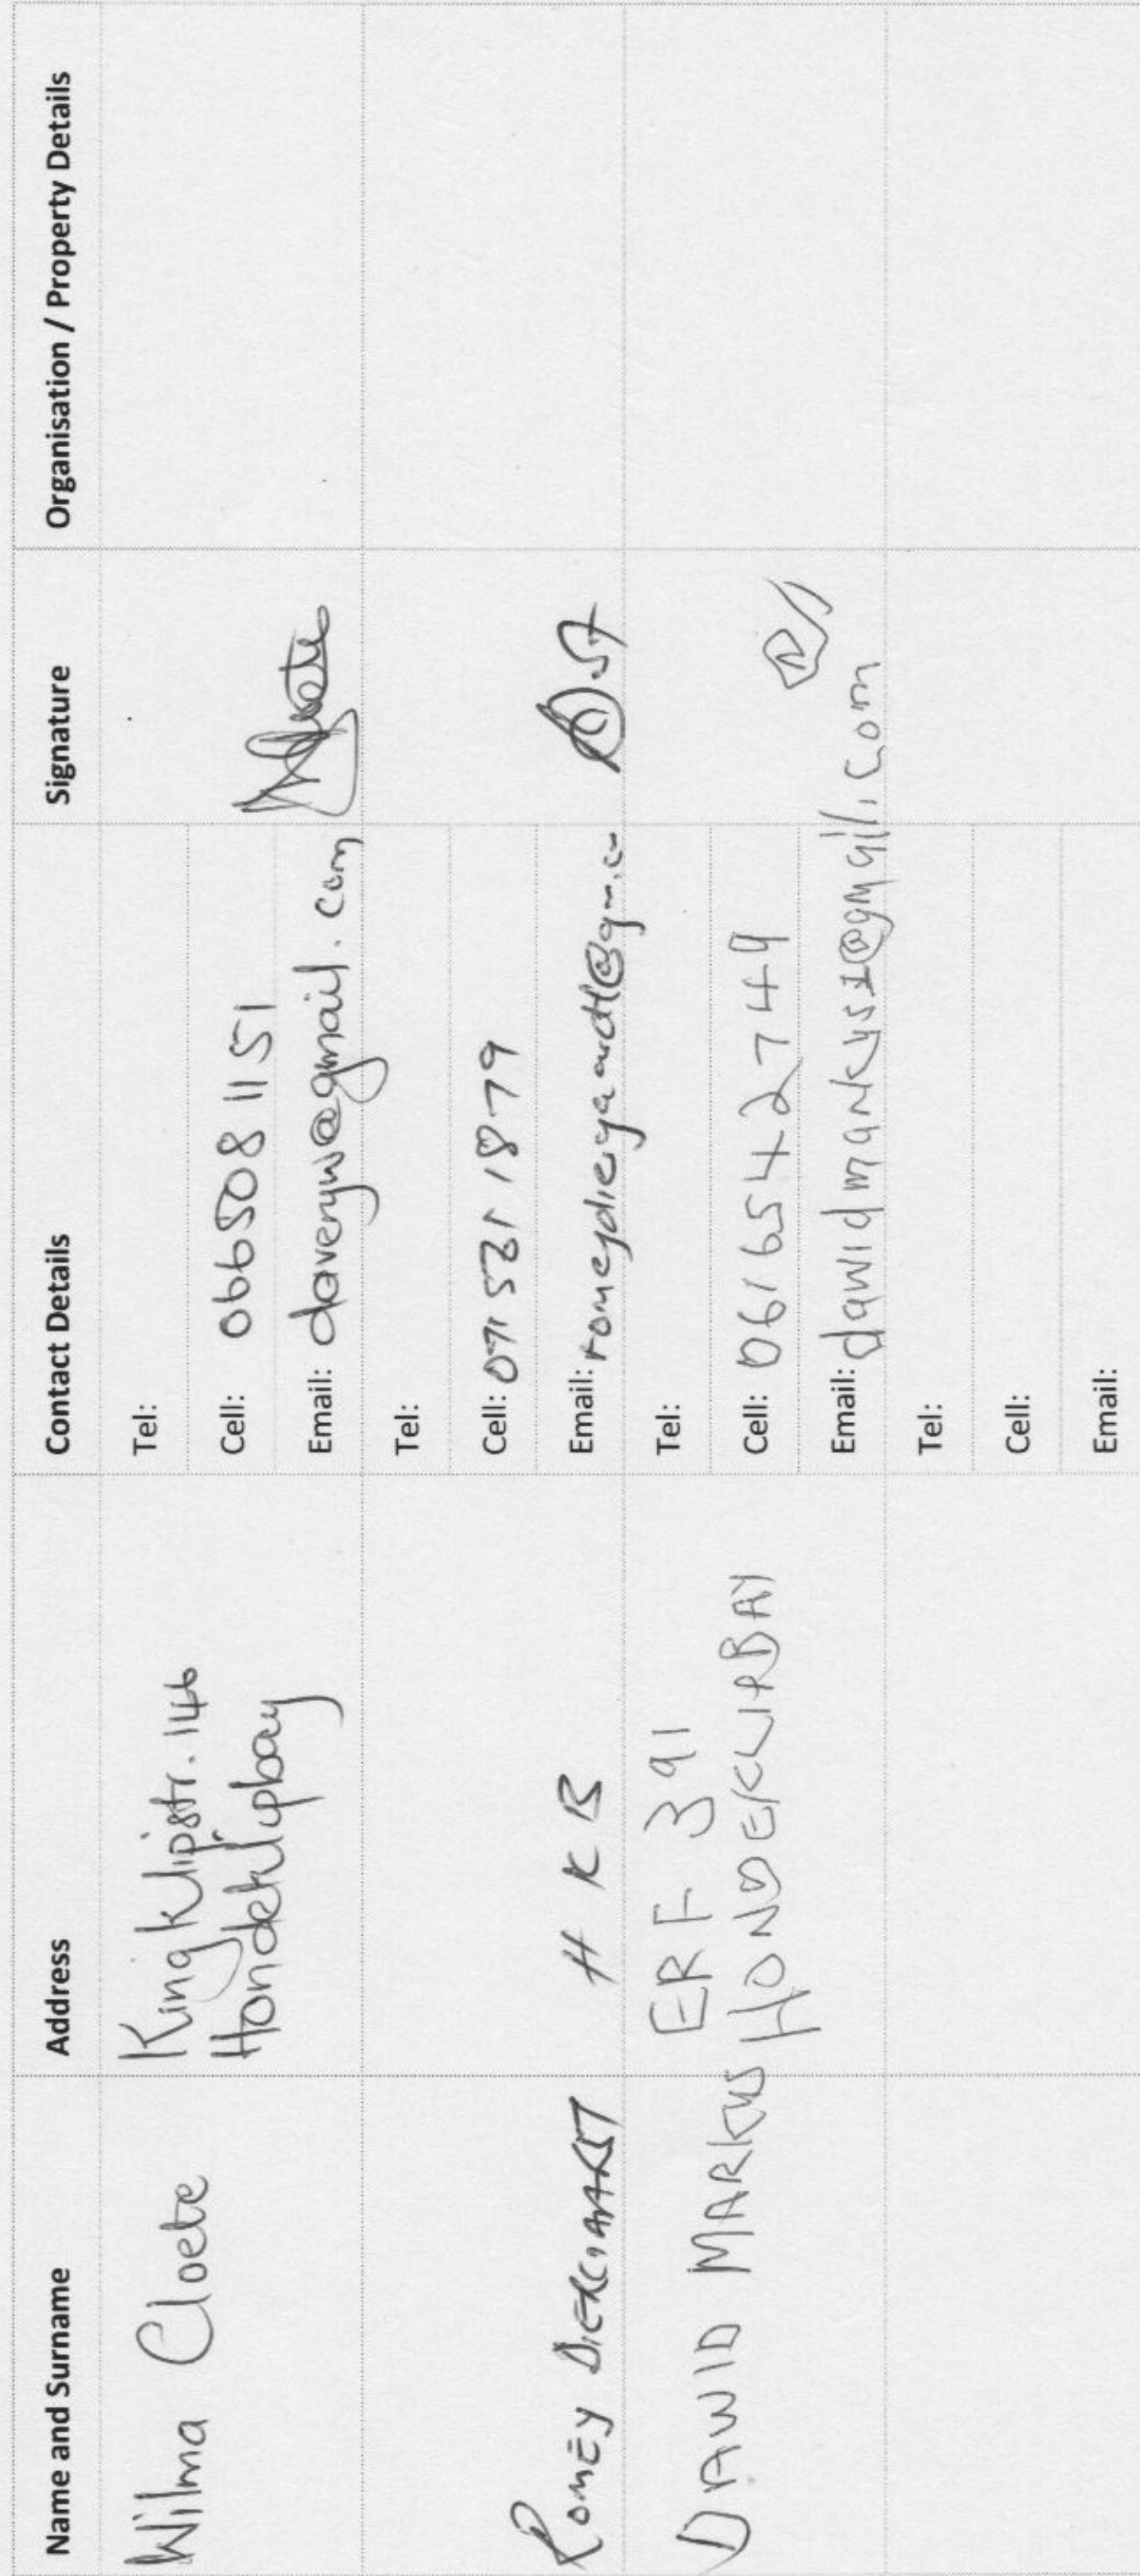 Name and Surname Address Contact Details Signature Organisation / Property Details
Wilma Cloete
Kingklipstr. 146
Hondeklipbay
Tel:
Cell: 066 508 1151
Email: daveryw@gmail.com
ROMEY
H K B
Tel:
Cell: 071 531 1879
Email:
DAWID MARKUS
ERF 391
HONDEKLIPBAY
Tel:
Cell: 061 654 2749
Email: dawidmarkus1@gmail.com
Tel:
Cell:
Email: